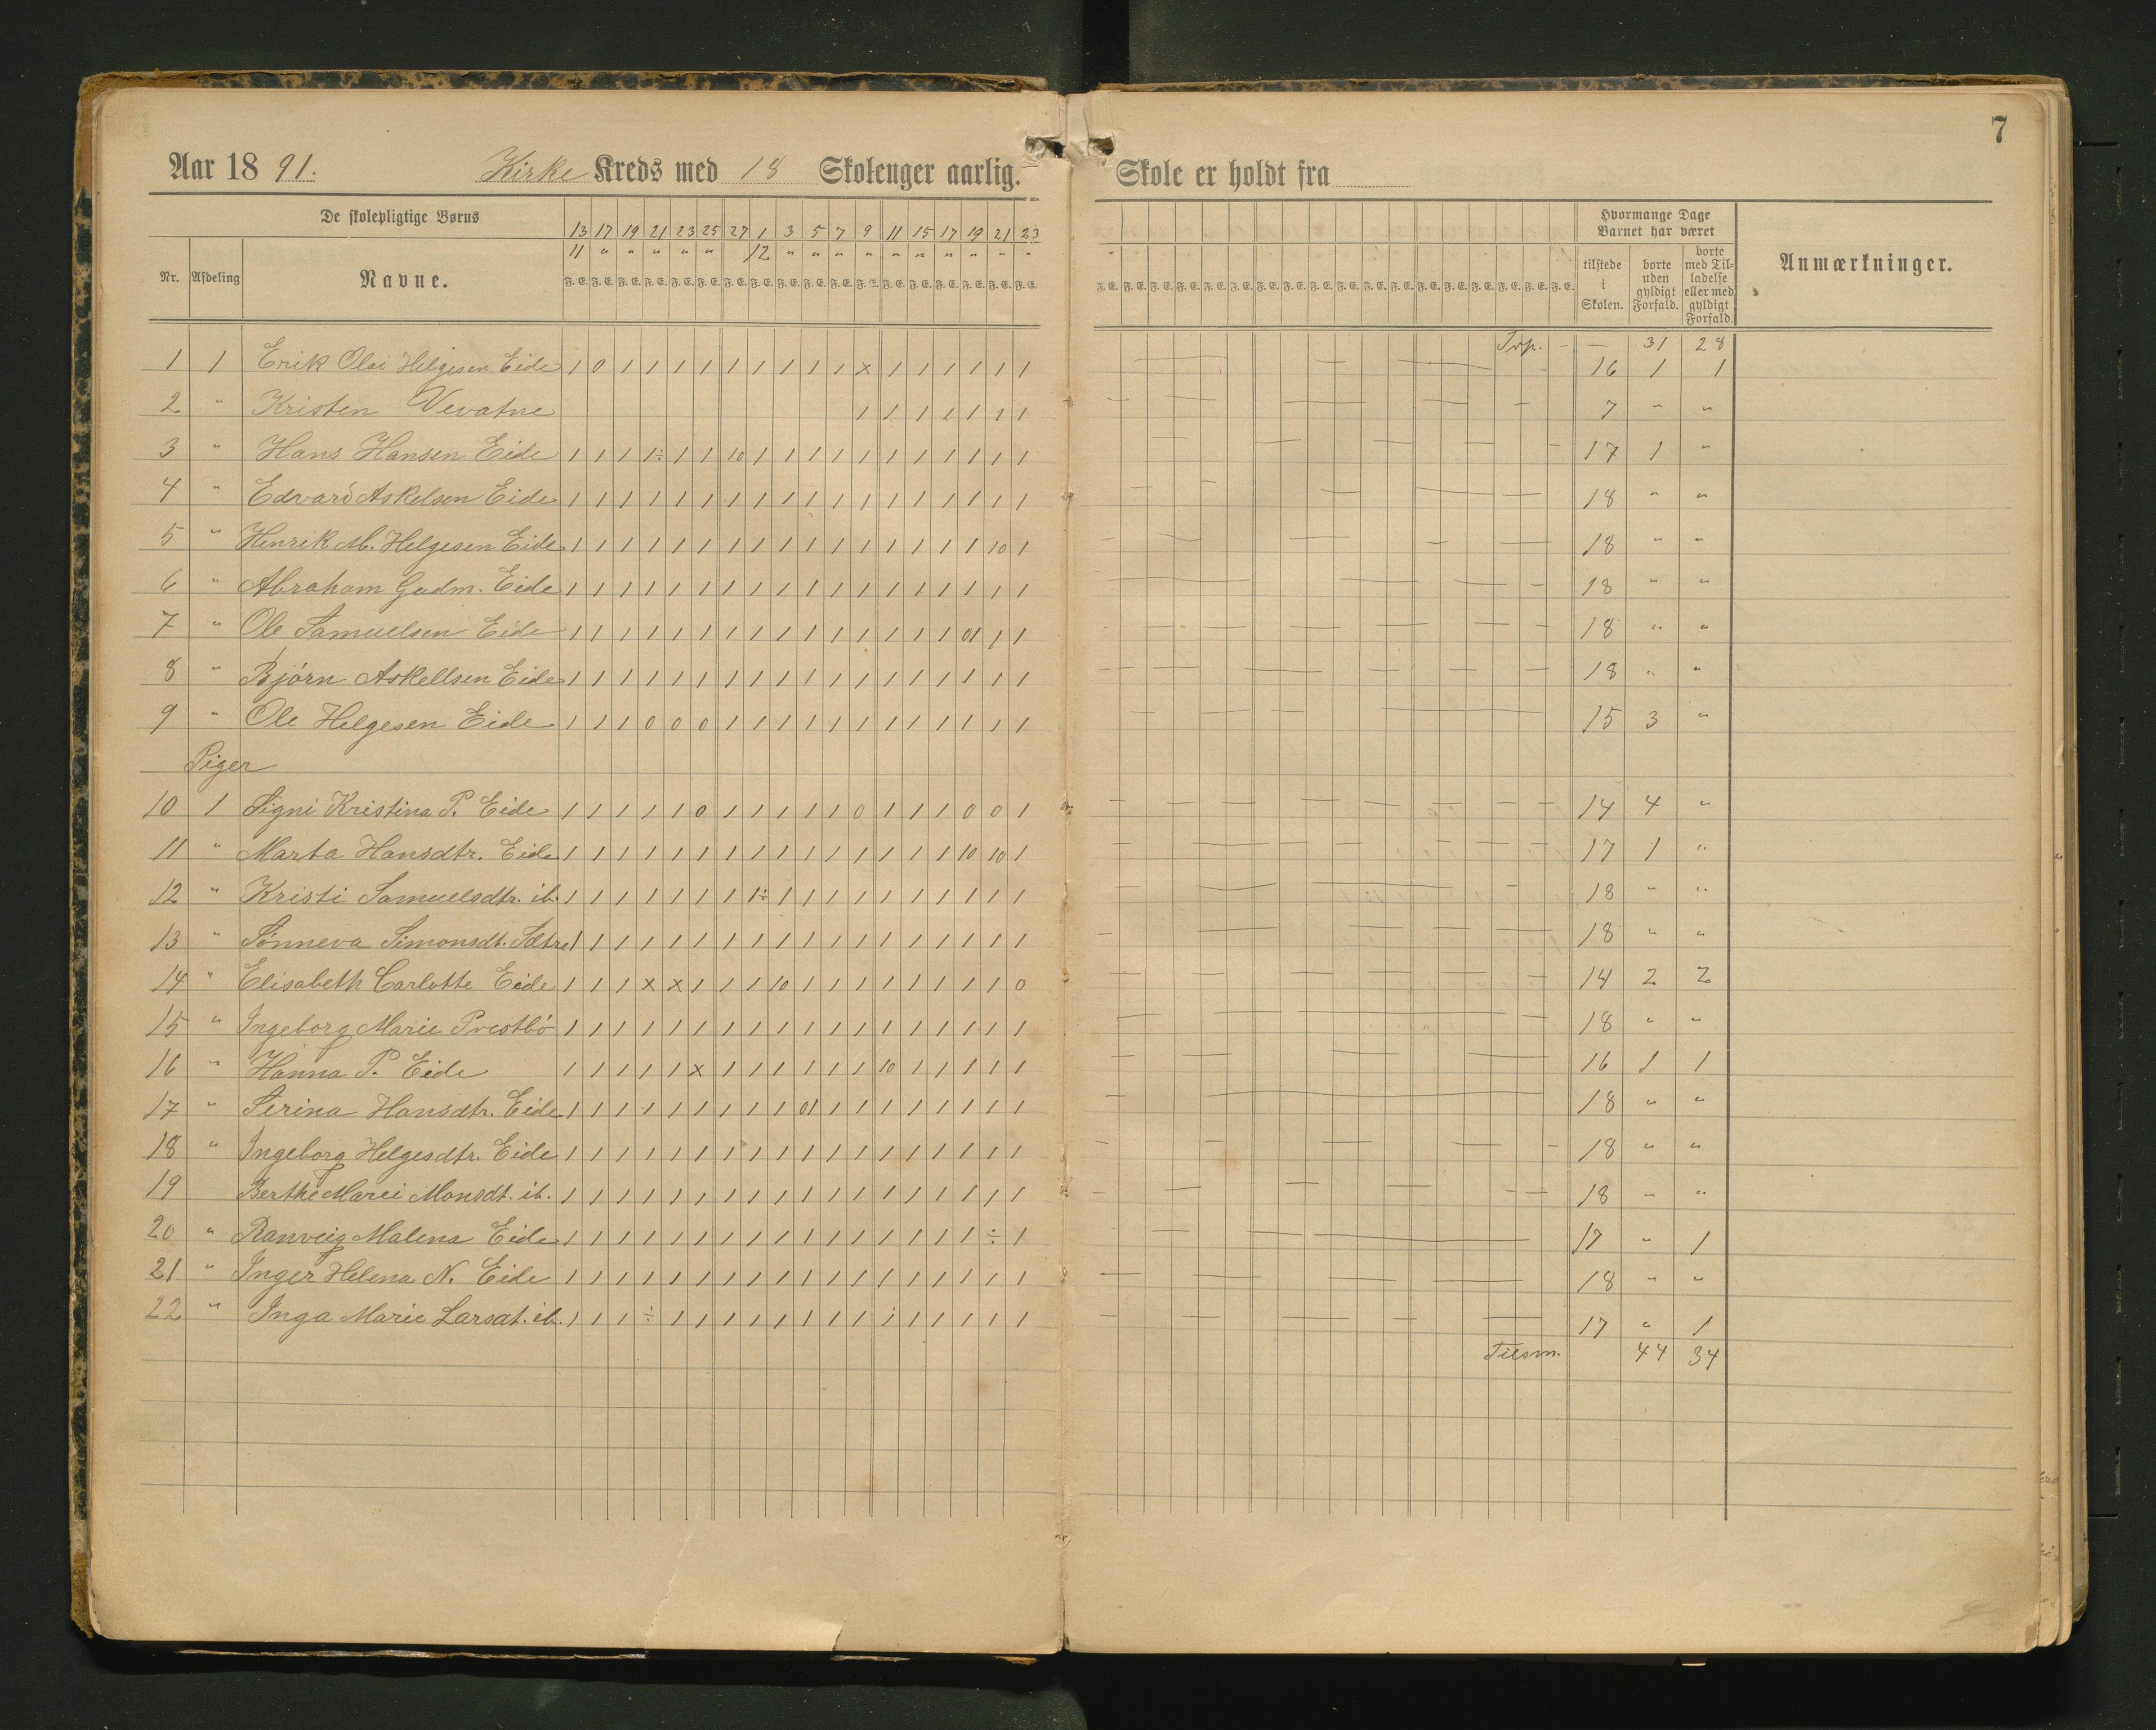 7
Aar 1891. Kirke Kreds med 18 Skoleuger aarlig. Skole er holdt fra
De skolepligtige Børns
Nr. Afdeling Navne.
13 17 19 21 23 25 27 1 3 5 7 9 11 15 17 19 21 23
11 " " " " " 12 " " " " " " " " " "
F. E. F. E. F. E. F. E. F. E. F. E. F. E. F. E. F. E. F. E. F. E. F. E. F. E. F. E. F. E. F. E. F. E. F. E.
Hvormange Dage Barnet har været
tilstede i Skolen. borte uden gyldigt Forfald. borte med Tilladelse eller med gyldigt Forfald. Anmærkninger.
Trp. - — 31 28
1 1 Erik Olai Helgesen Eide 1 0 1 1 1 1 1 1 1 1 1 x 1 1 1 1 1 1 16 1 1
2 " Kristen Vevatne 1 1 1 1 1 1 1 7 " "
3 " Hans Hansen Eide 1 1 1 1÷ 1 1 10 1 1 1 1 1 1 1 1 1 1 1 17 1 "
4 " Edvard Askelsen Eide 1 1 1 1 1 1 1 1 1 1 1 1 1 1 1 1 1 1 18 " "
5 " Henrik M. Helgesen Eide 1 1 1 1 1 1 1 1 1 1 1 1 1 1 1 1 10 1 18 " "
6 " Abraham Gudm. Eide 1 1 1 1 1 1 1 1 1 1 1 1 1 1 1 1 1 1 18 " "
7 " Ole Samuelsen Eide 1 1 1 1 1 1 1 1 1 1 1 1 1 1 1 01 1 1 18 " "
8 " Bjørn Askellsen Eide 1 1 1 1 1 1 1 1 1 1 1 1 1 1 1 1 1 1 18 " "
9 " Ole Helgesen Eide 1 1 1 0 0 0 1 1 1 1 1 1 1 1 1 1 1 1 15 3 "
Piger
10 1 Signi Kristina P. Eide 1 1 1 1 1 0 1 1 1 1 1 0 1 1 1 0 0 1 14 4 "
11 " Marta Hansdtr. Eide 1 1 1 1 1 1 1 1 1 1 1 1 1 1 1 10 10 1 17 1 "
12 " Kristi Samuelsdtr. ib. 1 1 1 1 1 1 1 1÷ 1 1 1 1 1 1 1 1 1 1 18 " "
13 " Sønneva Simonsdt. Sætre 1 1 1 1 1 1 1 1 1 1 1 1 1 1 1 1 1 1 18 " "
14 " Elisabeth Carlotte Eide 1 1 1 x x 1 1 1 10 1 1 1 1 1 1 1 1 0 14 2 2
15 " Ingeborg Marie Prestbø 1 1 1 1 1 1 1 1 1 1 1 1 1 1 1 1 1 1 18 " "
16 " Hanna P. Eide 1 1 1 1 1 x 1 1 1 1 1 1 10 1 1 1 1 1 16 1 1
17 " Serina Hansdtr. Eide 1 1 1 1 1 1 1 1 1 01 1 1 1 1 1 1 1 1 18 " "
18 " Ingeborg Helgesdtr. Eide 1 1 1 1 1 1 1 1 1 1 1 1 1 1 1 1 1 1 18 " "
19 Berthe Marei Monsdt. ib. 1 1 1 1 1 1 1 1 1 1 1 1 1 1 1 1 1 1 18 " "
20 " Ranveig Malena Eide 1 1 1 1 1 1 1 1 1 1 1 1 1 1 1 1 ÷ 1 17 " 1
21 " Inger Helena N. Eide 1 1 1 1 1 1 1 1 1 1 1 1 1 1 1 1 1 1 18 " "
22 " Inga Marie Larsdt. ib. 1 1 1 ÷ 1 1 1 1 1 1 1 1 1 1 1 1 1 1 17 " 1
Tilsm. 44 34